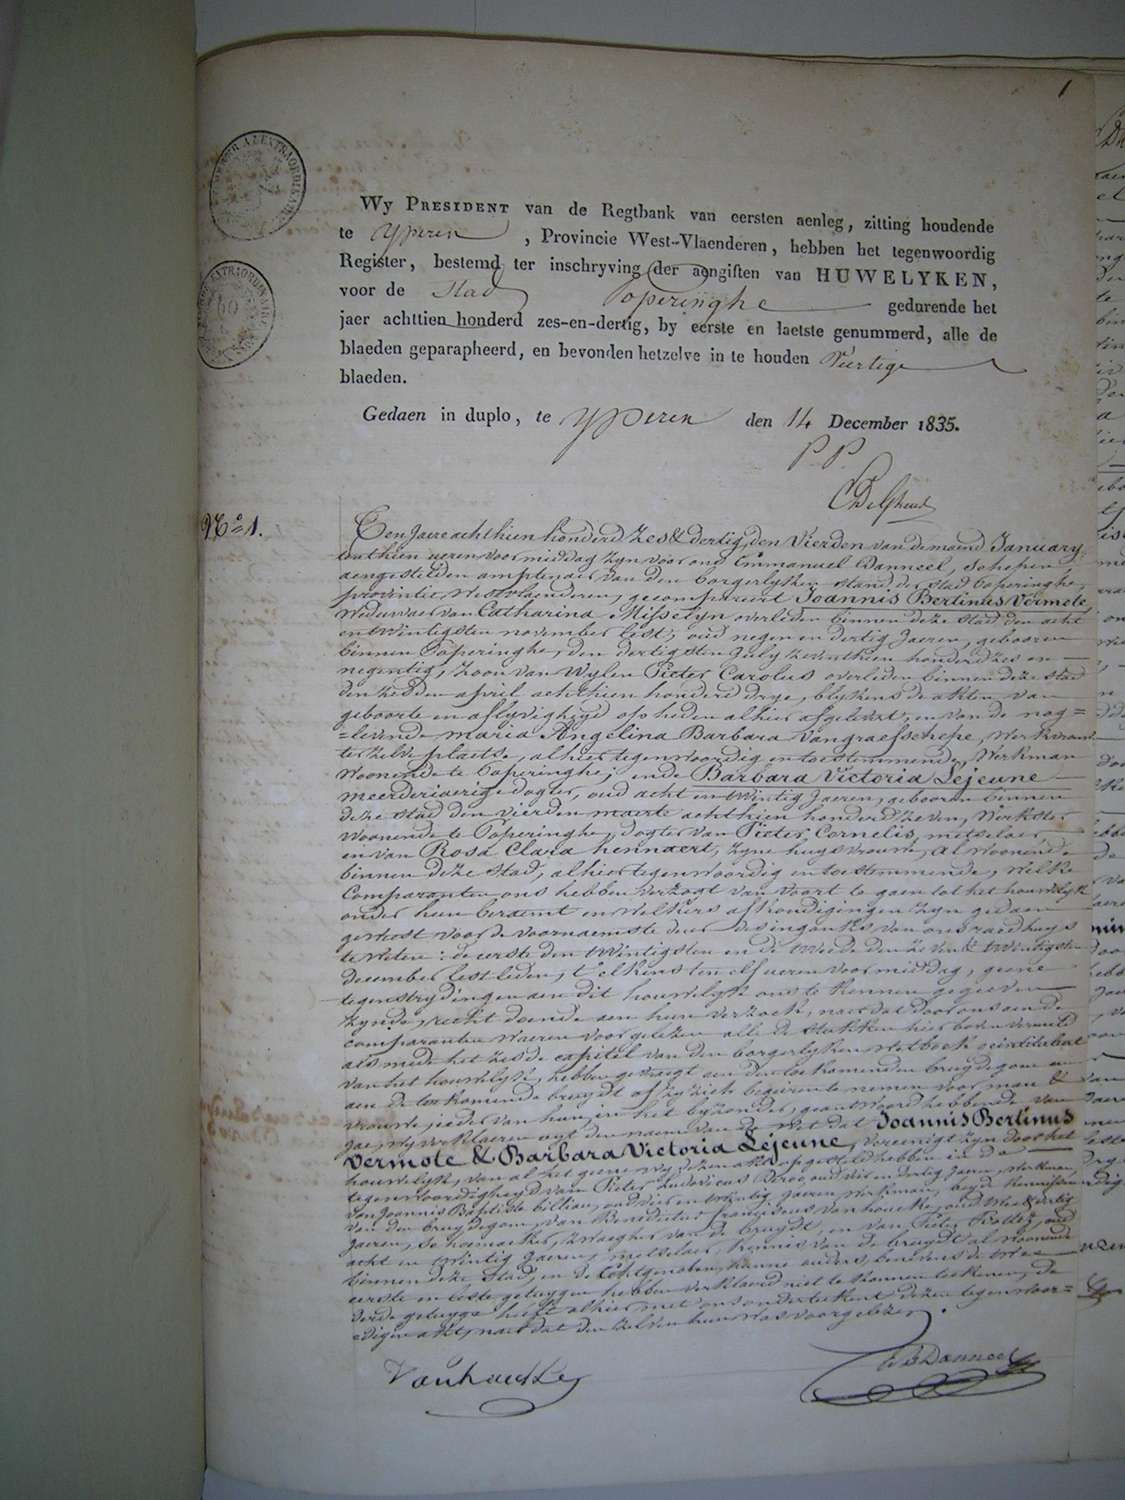 1
Wy PRESIDENT van de Regtbank van eersten aenleg, zitting houdende
te Yperen , Provincie West-Vlaenderen, hebben het tegenwoordig
Register, bestemd ter inschryving der aengiften van HUWELYKEN,
voor de Stad Poperinghe gedurende het
jaer achttien honderd zes-en-dertig, by eerste en laetste genummerd, alle de
blaeden geparapheerd, en bevonden hetzelve in te houden Veertig
blaeden.
Gedaen in duplo, te Yperen den 14 December 1835.
P. P.
No 1.
Een Jaere achthien honderd Zes & dertig, den Vierden van de maend January,
ueren voormiddag zyn voor ons Emmanuel Danneel, Schepen
aengestelden amptenaer van den borgerlyken stand der stad Poperinghe,
provintie Westvlaenderen, gecompareert Joannis Bertinus Vermote
Weduwaer van Catharina Misselyn overleden binnen deze Stad den acht
en twintigsten november lest, oud negen en dertig Jaeren, gebooren
binnen Poperinghe, den dertigsten July zeventhien honderd zes en
negentig, zoon van Wylen Pieter Carolus overleden binnen deze stad
den april achthien honderd drye, blykens de akten van
geboorte en aflyvigheyd op heden alhier afgelevert, en van de nog=
=levende Maria Angelina Barbara Vangraefschepe, Werkvrouw
ter zelve plaetse, alhier tegenwoordig en toestemmende, Werkman
Woonende te Poperinghe; en de Barbara Victoria Lejeune
meerderjaerige dogter, oud acht en twintig Jaeren, gebooren binnen
deze stad den vierden maerte achthien honderd zeven, Werkster
Woonende te Poperinghe, dogter van Pieter Cornelis, metselaer,
en van Rosa Clara hennaert, zyne huysvrouwe, al woonende
binnen deze Stad, alhier tegenwoordig en toestemmende, Welke
Comparanten ons hebben verzogt van voort te gaen tot het houwelyk
onder hun beraemt en welkers afkondigingen zyn gedaen
geweest voor de voornaemste deur des ingangks van ons raedhuys
te weten: de eerste den twintigsten en de tweede den zeven & twintigsten
December lestleden, t'elkens ten elf ueren voormiddag, geene
tegenstrydingen aen dit houwelyk ons te kennen gegeeven
zynde, recht doende aen hun verzoek, naer dat door ons aen de
comparanten waeren voorgelezen alle de stukken hier boven vermeld
als mede het zesde capitel van den borgerlyken Wetboek geintituleert
van het houwelyk, hebben gevraegt aen den toekomenden bruydegom en
aen de toekomende bruydt of zy zich begeeren te nemen voor man &
vrouwe, ieder van hun in het byzonder, geantwoord hebbende van
Jae, Wy verklaeren uyt den naem van de Wet dat Joannis Bertinus
Vermote & Barbara Victoria Lejeune, vereenigt zyn door het
houwelyk, van al het geene wy dezen akt opgesteld hebben in de
tegenwoordigheyd van Pieter Ludovicus oud vier en dertig Jaeren, Werkman,
van Joannis Baptiste Billiau, oud vier en twintig Jaeren, Werkman, beyde kennissen
van den bruydegom, van Benedictus Franciscus Vanhoucke, oud twee & dertig
Jaeren, Schoenmaeker, Zwaegher van de bruydt, en van Pieter oud
acht en twintig Jaeren, metselaer, kennis van de bruydt al woonende
binnen deze Stad, en de Echtgenoten, hunne ouders, benevens de twee
eerste en leste getuygen hebben verklaerd niet te konnen teekenen, de
derde getuyge heeft alhier met ons onderteekent dezen tegenwoor=
=digen akt, naer dat den zelven hun was voorgelezen.
Vanhoucke
E Danneel